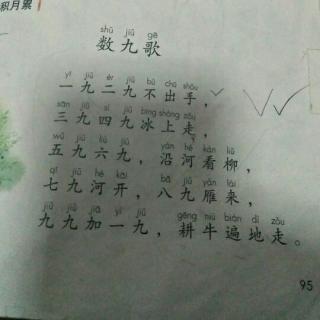 积月累
shǔ jiǔ gē
数九歌
yī jiǔ èr jiǔ bù chū shǒu
一九二九不出手，
sān jiǔ sì jiǔ bīng shàng zǒu
三九四九冰上走，
wǔ jiǔ liù jiǔ yán hé kàn liǔ
五九六九，沿河看柳，
qī jiǔ hé kāi bā jiǔ yàn lái
七九河开，八九雁来，
jiǔ jiǔ jiā yī jiǔ gēng niú biàn dì zǒu
九九加一九，耕牛遍地走。
95